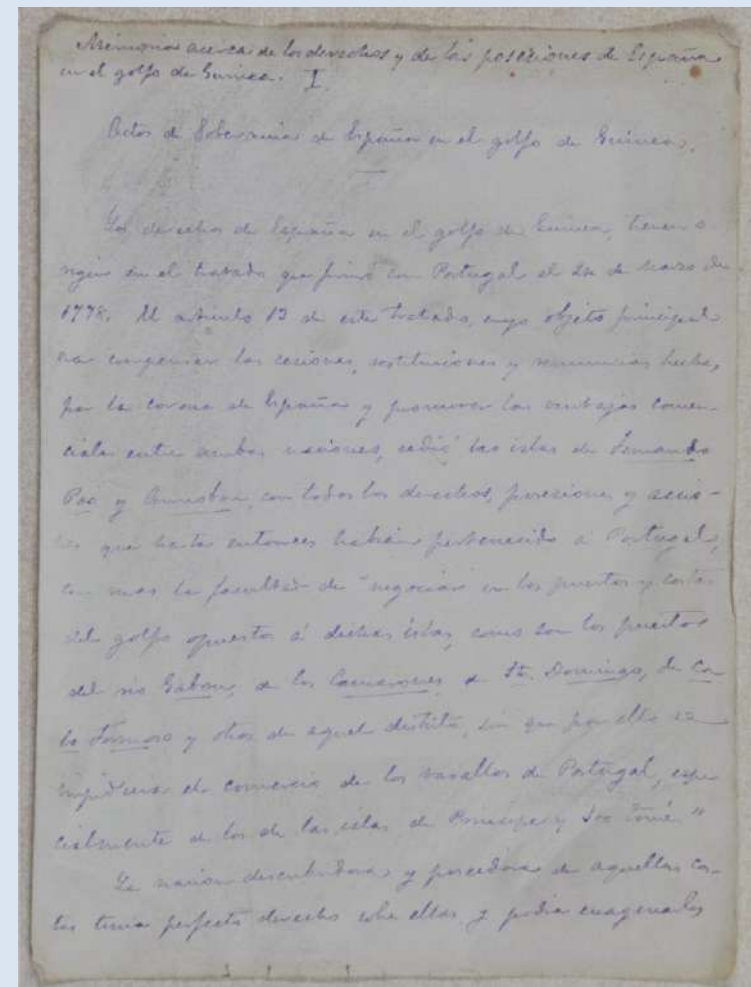 Memoria acerca de los derechos y de las posesiones de España
en el golfo de Guinea. I.
Actos de Soberania de España en el golfo de Guinea.
Los derechos de España en el golfo de Guinea, tienen o-
rigen en el tratado que firmó con Portugal el 24 de marzo de
1778. El articulo 13 de este tratado, cuyo objeto principal
era compensar las cesiones, restituciones y renuncias hechas
por la corona de España y promover las ventajas comer-
ciales entre ambas naciones, cedió las islas de Fernando
Poo y Annobon, con todos los derechos, posesiones y accio-
nes que hasta entonces habian pertenecido á Portugal,
con mas la facultad de "negociar en los puertos y costas
del golfo opuestos á dichas islas, como son los puertos
del rio Gabon, de los Camarones, de Sto. Domingo, de Ca-
bo Formoso y otros de aquel distrito, sin que por ello se
impidiera el comercio de los vasallos de Portugal, espe-
cialmente de los de las islas de Principe y Sto Tomé."
La nacion descubridora y poseedora de aquellas cos-
tas tenia perfecto derecho sobre ellas y podia enagenarlos